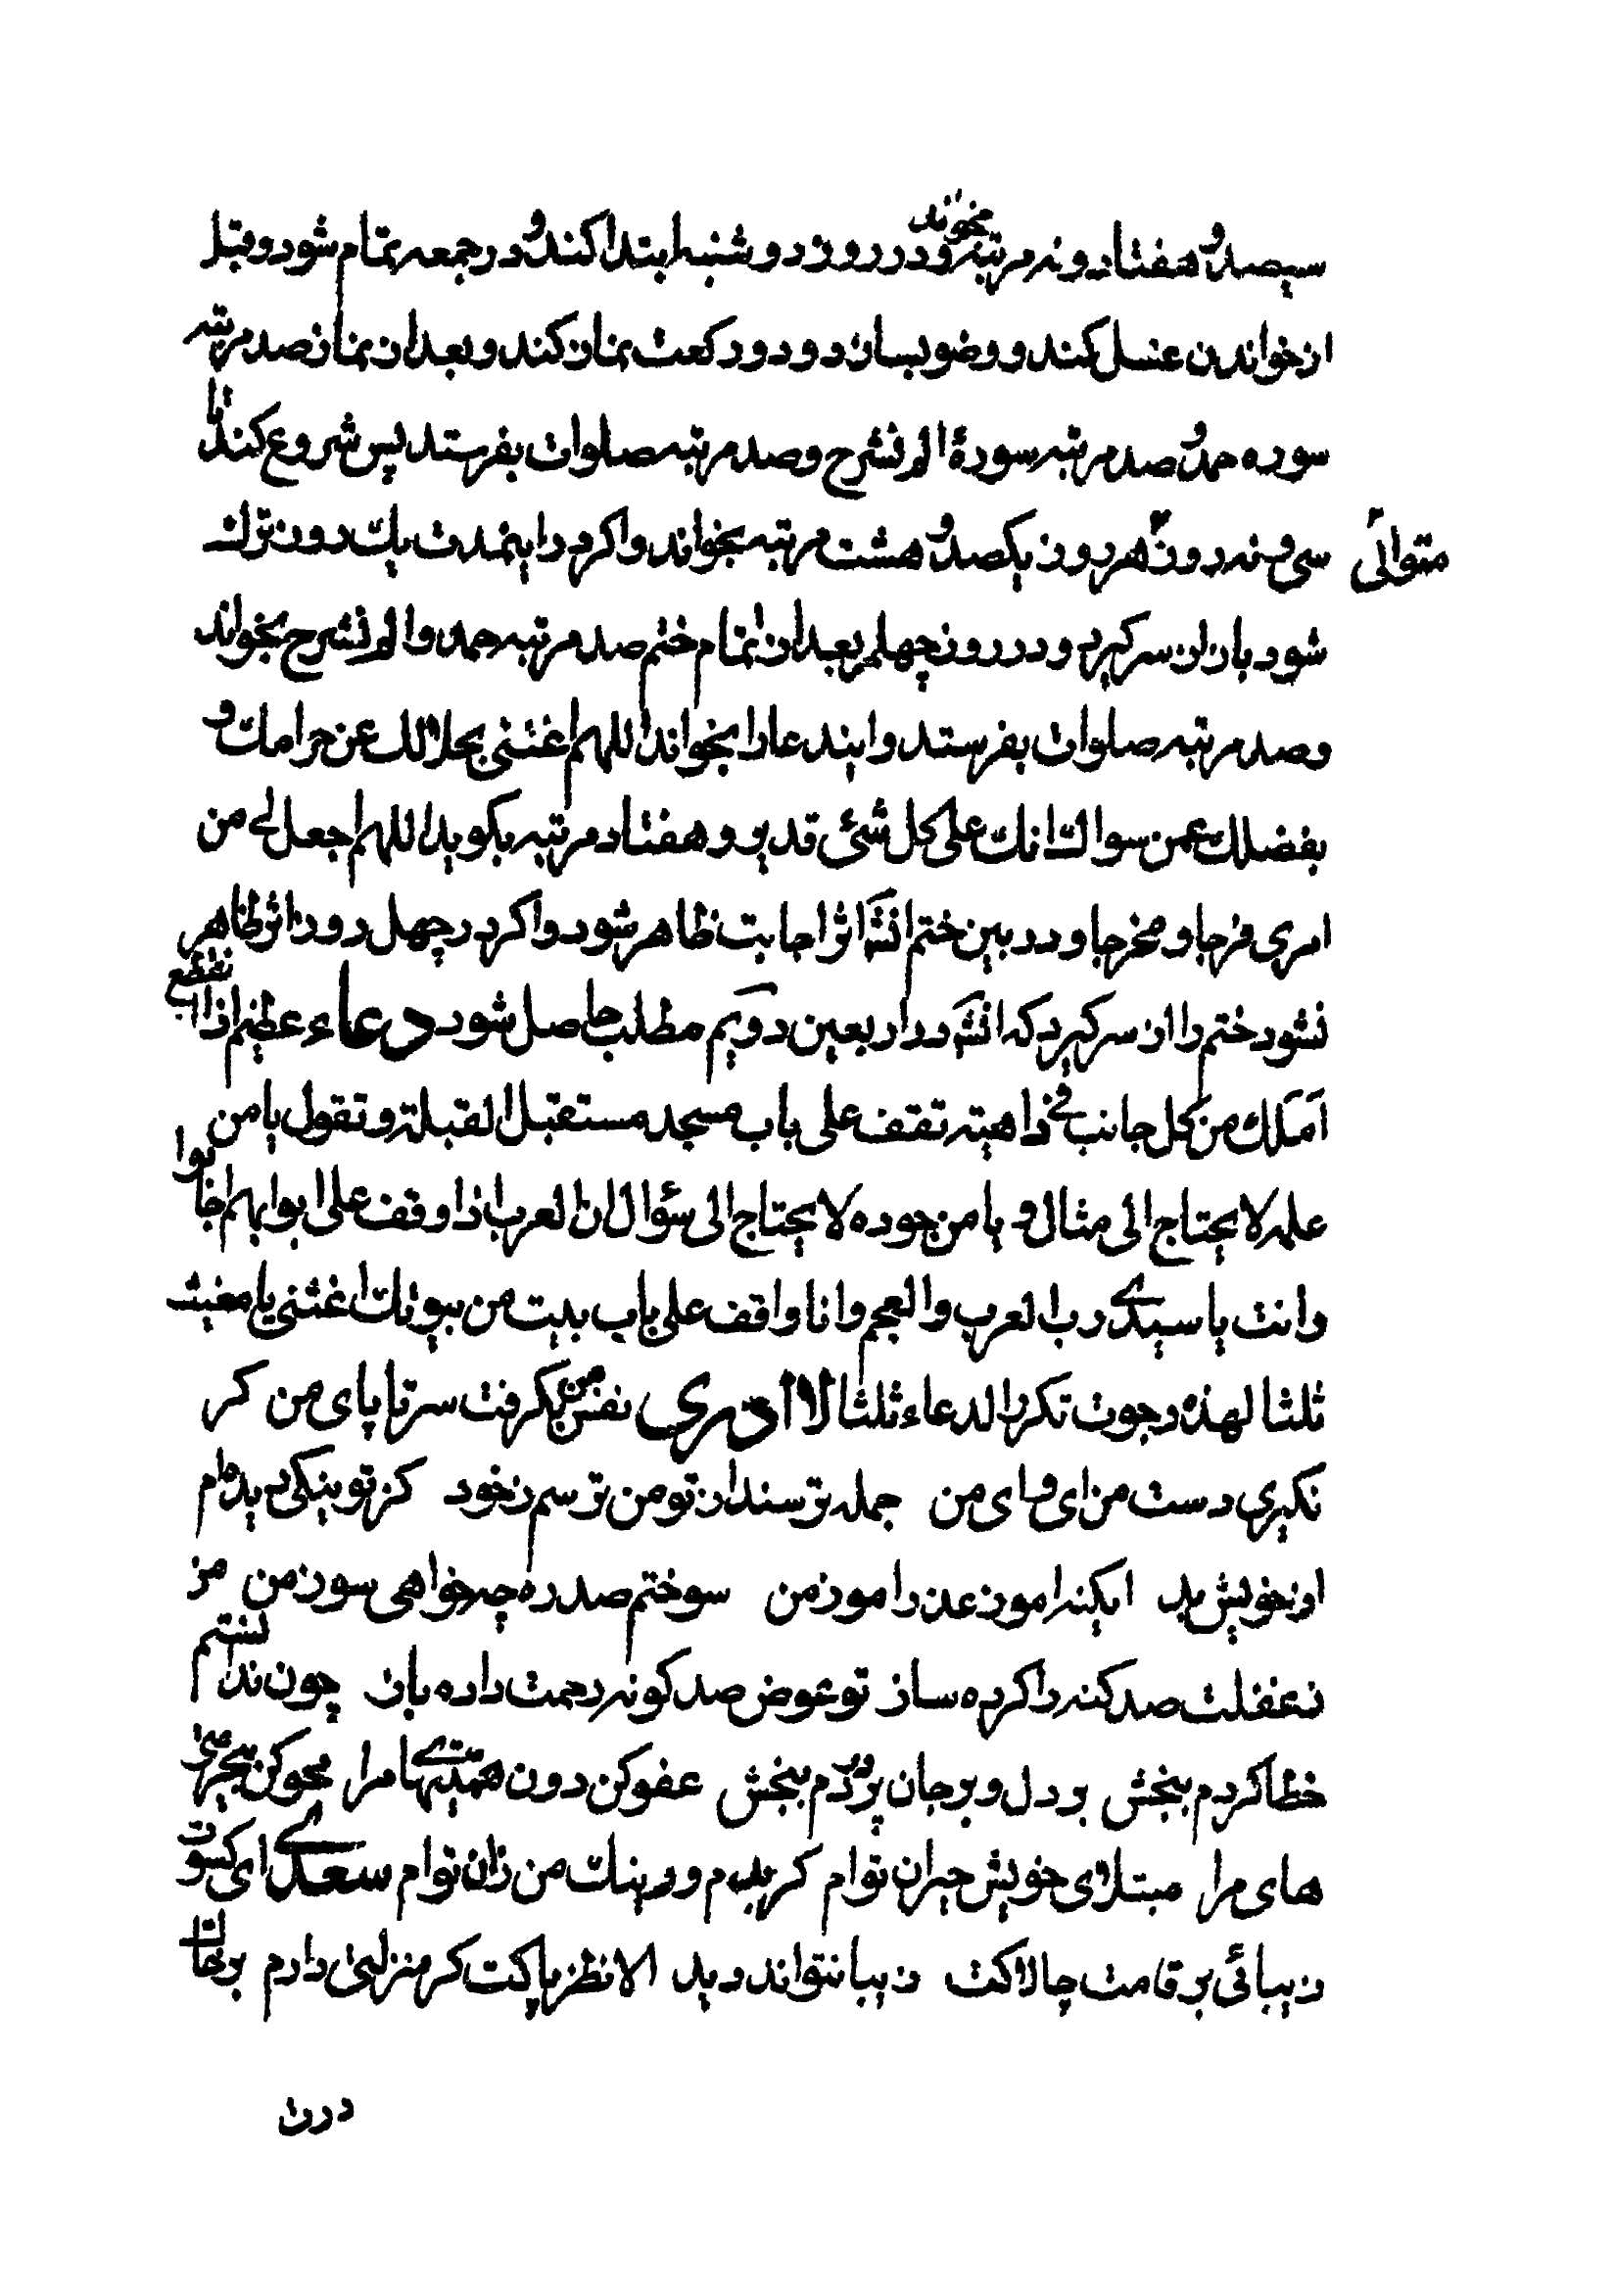 سیصد و هفتاد و نه مرتبه بخواند و در روز دوشنبه ابتدا کند و در جمعه تمام شود و قبل
از خواندن غسل کند و وضو بسازد و دو رکعت نماز کند و بعد از نماز صد مرتبه
سوره حمد و صد مرتبه سورهٔ الم نشرح و صد مرتبه صلوات بفرستد پس شروع کند تا
سی و نه روز هر روز یکصد و هشت مرتبه بخواند و اکر در اینمدت یک روز ترک متوالی
شود باز از سر کیرد و در روز چهلم بعد از اتمام ختم صد مرتبه حمد و الم نشرح بخواند
و صد مرتبه صلوات بفرستد و ایندعا را بخواند اللهم اغننی بحلالک عن حرامک و
بفضلک عمن سواک انک علی کل شئ قدیر و هفتاد مرتبه بکوید اللهم اجعل لی من
امری فرجا و مخرجا و در بین ختم انشه اثر اجابت ظاهر شود و اکر در چهل روز اثر ظاهر
نشود ختم را از سر کیرد که انشه در اربعین دویم مطلب حاصل شود دعاء عظیم اذا انقطع
املک من کل جانب فی داهیة تقف علی باب مسجد مستقبل القبلة و تقول یا من
علمه لا یحتاج الی مثالی و یا من جوده لا یحتاج الی سؤال ان العرب اذا وقف علی ابوابهم اجابوا
وانت یا سیدی رب العرب والعجم وانا واقف علی باب بیت من بیوتک اغثنی یا مغیث
ثلثا لهذه رجوت تکرر الدعاء ثلثا لا ادری نفس من بکرفت سر تا پای من کر
نکیری دست من ای وای من جمله ترسند از تو من ترسم ز خود کز تو نیکی دیده‌ام
از خویش بد ایکنه امرز عذر اموز من سوختم صد ره چه خواهی سوز من من
ز غفلت صد کنه را کرده ساز تو عوض صد کونه رحمت داده باز چون ندانستم
خطا کردم ببخش بر دل و بر جان پر دردم ببخش عفو کن دون همتیهای مرا محو کن بیحرمتی
های مرا مبتلای خویش حیران توام کر بدم ور نیک من زان توام سعدی ای کسوت
زیبائی بر قامت چالاکت زیبا نتواند دید الا نظر پاکت کر منزلتی دارم بر خاک
درت